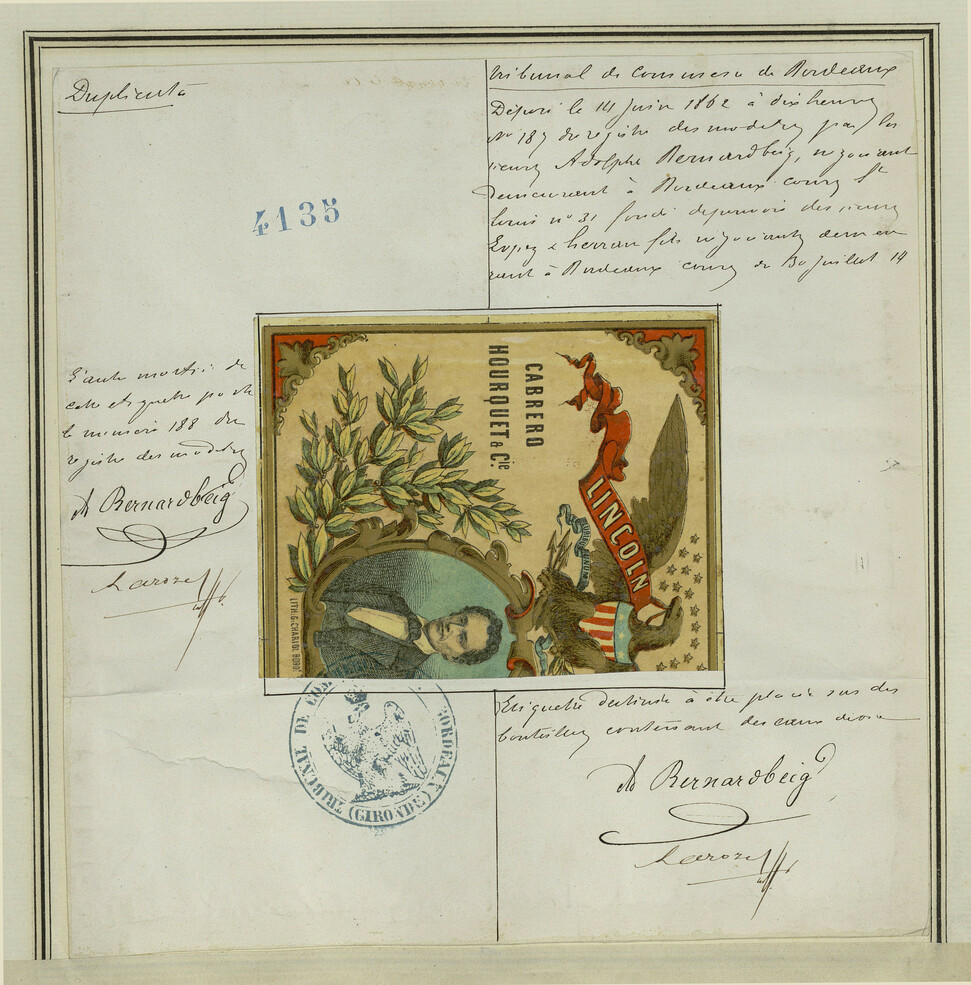 Duplicata
4135
Tribunal de Commerce de Bordeaux
Déposé le 14 Juin 1862 à dix heures
No 187 du registre des modèles par les
sieurs Adolphe Bernardbeig, négociant
demeurant à Bordeaux cours St
Louis no 31 fondé de pouvoir des sieurs
Lopez & herran fils négociants demeu
rant à Bordeaux cours du 30 juillet 14
L'autre moitié de
cette étiquette porte
le numéro 188 du
registre des modèles
Ad Bernardbeig
Laroze
CABRERO
HOURQUET & Cie.
LINCOLN
LITH. G. CHARIOL BORDX
TRIBUNAL DE COM BORDEAUX (GIRONDE)
Etiquette destinée à être placée sur des
bouteilles contenant des eaux de vie
Ad Bernardbeig
Laroze